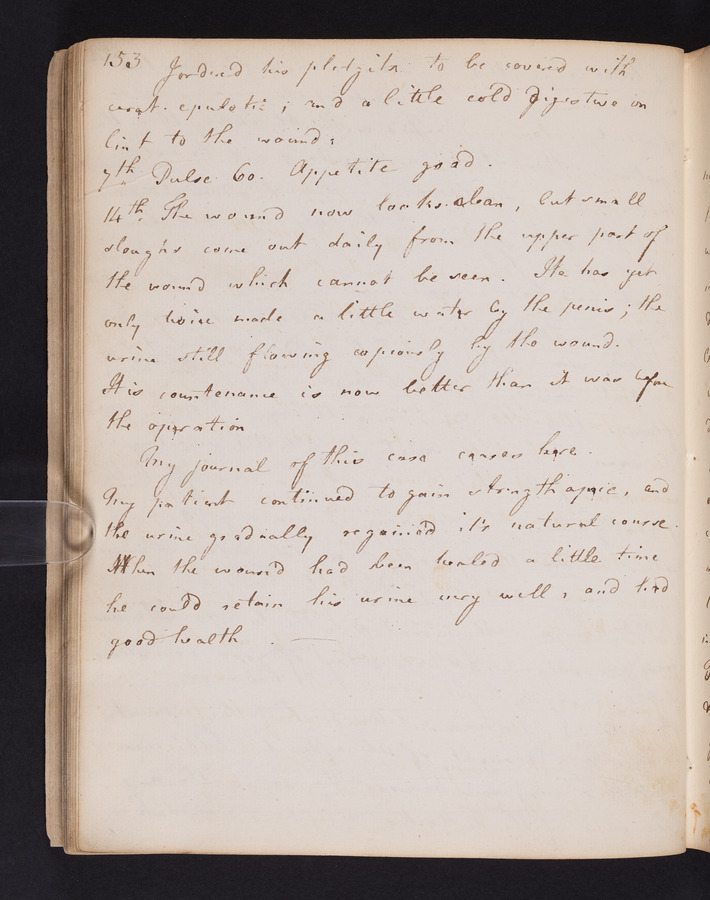 153 I order'd his pledgits to be covered with
cerat. epulotic ; and a little cold Digestive on
lint to the wound;
7th Pulse 60. Appetite good.
14th. The wound now looks clean, but small
sloughs come out daily from the upper part of
the wound which cannot be seen. He has yet
only twice made a little water by the penis ; the
urine still flowing copiously by the wound.
His countenance is now better than it was before
the operation
My journal of this case ceases here.
My patient continued to gain strength apace, and
the urine gradually regained it's natural course.
When the wound had been healed a little time
he could retain his urine very well, and had
good health. —